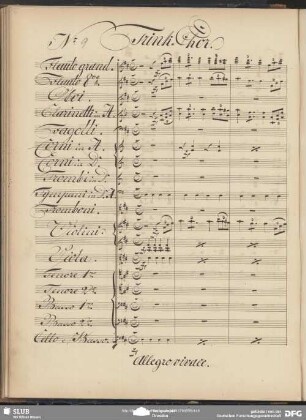 No 9 Trink Chor.
Flauto grand.
Flauto 8va
Oboi.
Clarinetti in A.
Fagotti.
Corni in A.
Corni in D.
Trombe in D.
Tympani in D. A
Tromboni.
Violini.
Viola.
Tenore 1mo
Tenore 2do
Basso 1mo
Basso 2do
Cello e Basso.
Allegro vivace.
SLUB
DFG